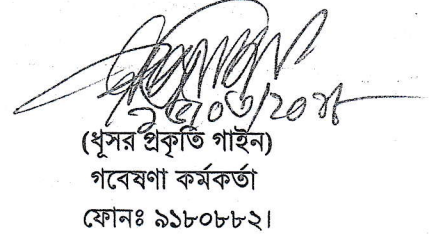 (ধূসর প্রকৃতি গাইন)
গবেষণা কর্মকর্তা
ফোনঃ ৯১৮০৮৮২।